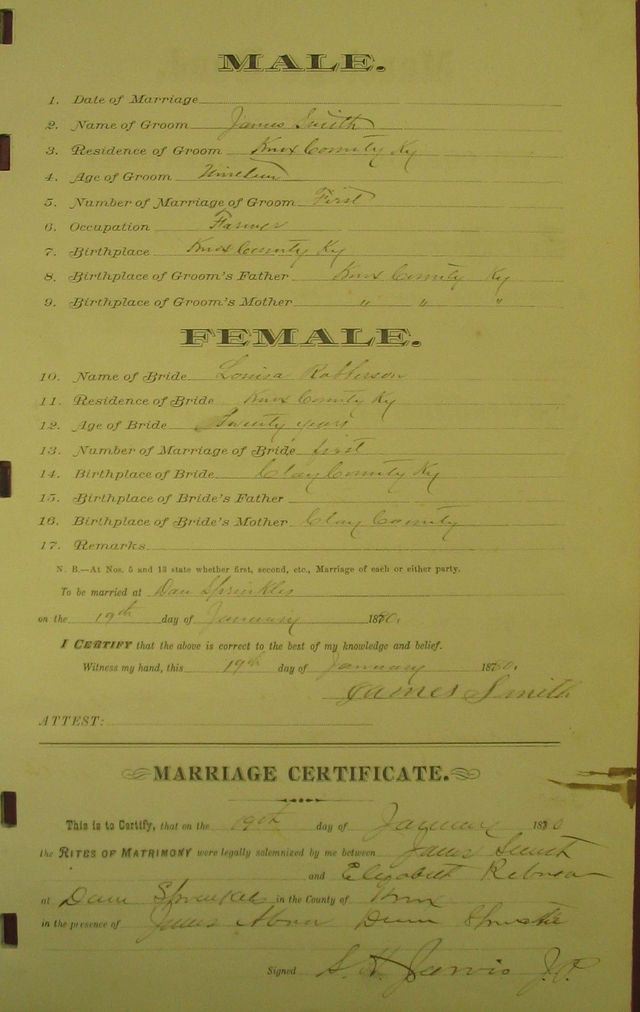 MALE.
1. Date of Marriage
2. Name of Groom James Smith
3. Residence of Groom Knox County Ky
4. Age of Groom
5. Number of Marriage of Groom First
6. Occupation Farmer
7. Birthplace Knox County Ky
8. Birthplace of Groom's Father Knox County Ky
9. Birthplace of Groom's Mother " " "
FEMALE.
10. Name of Bride Louisa
11. Residence of Bride Knox County Ky
12. Age of Bride Twenty years
13. Number of Marriage of Bride first
14. Birthplace of Bride Clay County Ky
15. Birthplace of Bride's Father
16. Birthplace of Bride's Mother Clay County
17. Remarks
N. B.—At Nos. 5 and 13 state whether first, second, etc., Marriage of each or either party.
To be married at Dan Sprinkles
on the 19th day of January 1880.
I CERTIFY that the above is correct to the best of my knowledge and belief.
Witness my hand, this 19th day of January 1880.
James Smith
ATTEST:
MARRIAGE CERTIFICATE.
This is to Certify, that on the 19th day of January 1880
the RITES OF MATRIMONY were legally solemnized by me between James Smith
and Elizabeth
at Dan Sprinkles in the County of Knox
in the presence of James
Signed S. H. Jarvis J.P.